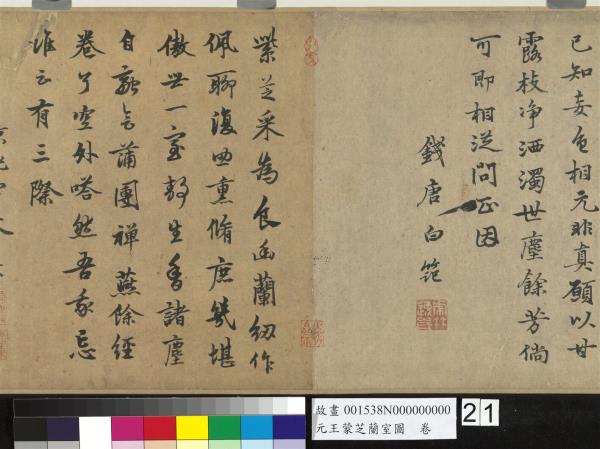 已知妄色相元非真願以甘
露枝净洒濁世塵餘芳倘
可即相從問正因
錢唐白範
紫芝采為食幽蘭紉作
佩聊復熏脩庶幾堪
傲世一室靜生香諸塵
自融會蒲團禪燕餘經
卷了空外嗒然吾我忘
誰云有三際
故畫 001538N000000000
元王蒙芝蘭室圖 卷
21